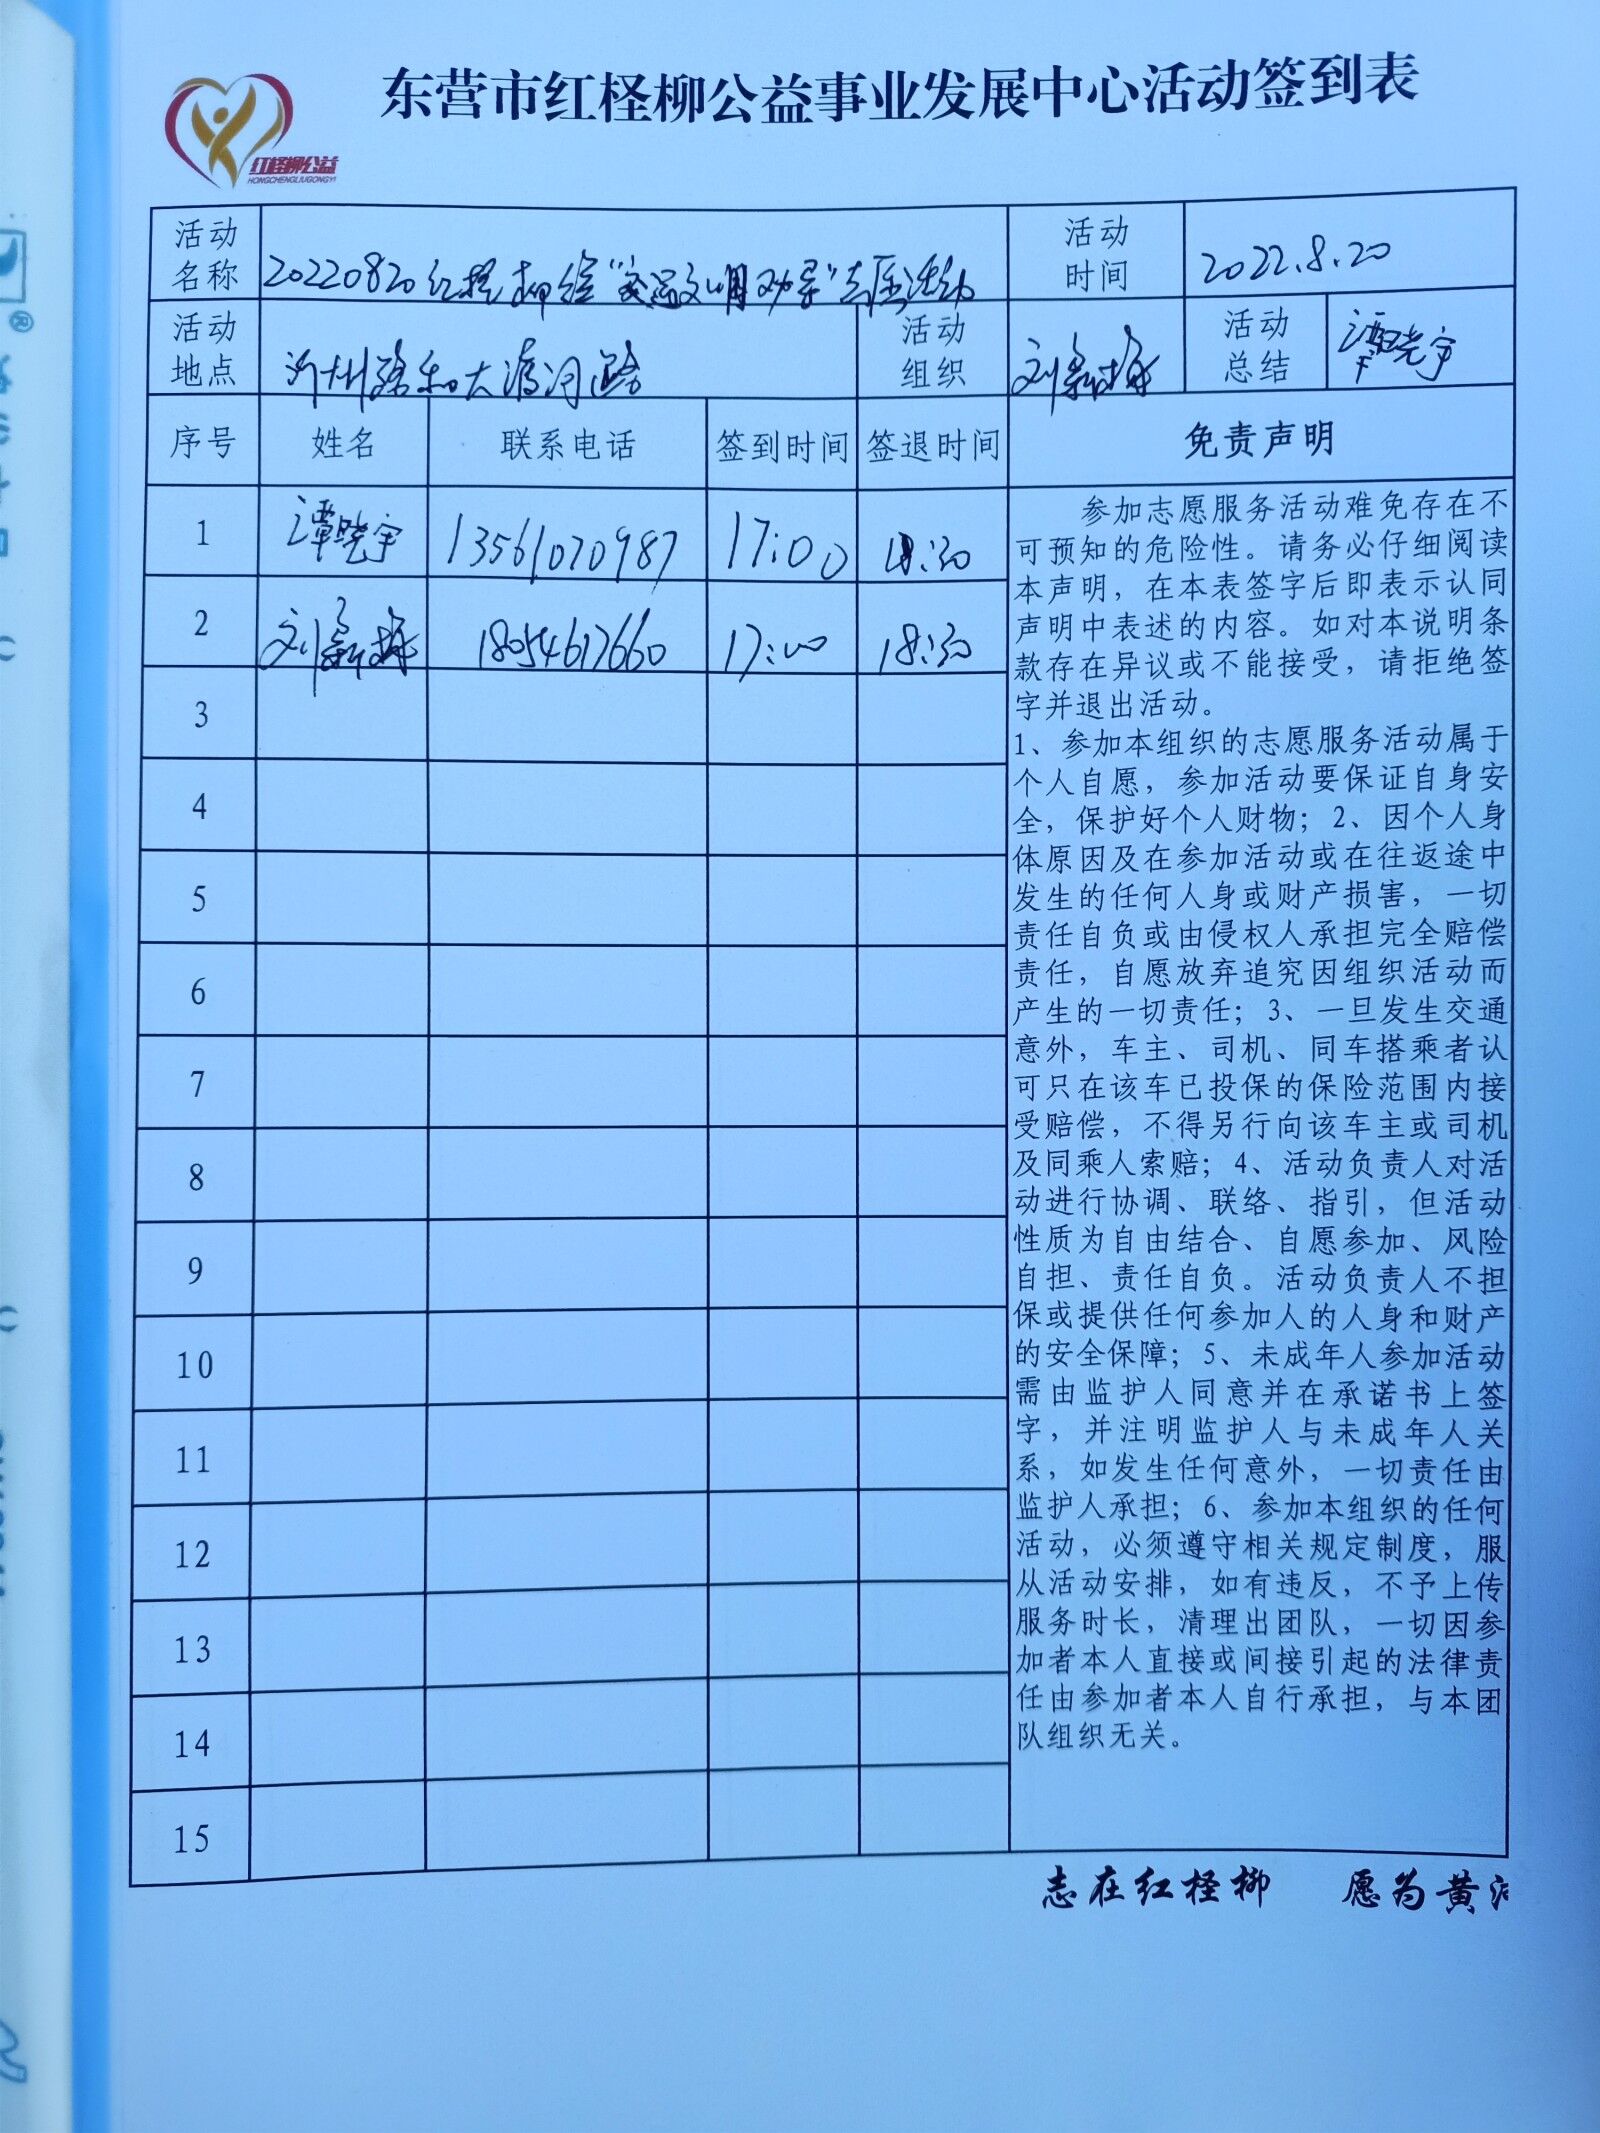 东营市红柽柳公益事业发展中心活动签到表
红柽柳公益
HONGCHENGLIUGONGYI
活动名称 20220820红柽柳 "交通文明劝导"志愿活动 活动时间 2022.8.20
活动地点 沂州路和大渡河路 活动组织 刘新梅 活动总结 谭晓宇
序号 姓名 联系电话 签到时间 签退时间 免责声明
1 谭晓宇 13561070987 17:00 18:30
2 刘新梅 18054617660 17:00 18:30
3
4
5
6
7
8
9
10
11
12
13
14
15
参加志愿服务活动难免存在不
可预知的危险性。请务必仔细阅读
本声明，在本表签字后即表示认同
声明中表述的内容。如对本说明条
款存在异议或不能接受，请拒绝签
字并退出活动。
1、参加本组织的志愿服务活动属于
个人自愿，参加活动要保证自身安
全，保护好个人财物；2、因个人身
体原因及在参加活动或在往返途中
发生的任何人身或财产损害，一切
责任自负或由侵权人承担完全赔偿
责任，自愿放弃追究因组织活动而
产生的一切责任；3、一旦发生交通
意外，车主、司机、同车搭乘者认
可只在该车已投保的保险范围内接
受赔偿，不得另行向该车主或司机
及同乘人索赔；4、活动负责人对活
动进行协调、联络、指引，但活动
性质为自由结合、自愿参加、风险
自担、责任自负。活动负责人不担
保或提供任何参加人的人身和财产
的安全保障；5、未成年人参加活动
需由监护人同意并在承诺书上签
字，并注明监护人与未成年人关
系，如发生任何意外，一切责任由
监护人承担；6、参加本组织的任何
活动，必须遵守相关规定制度，服
从活动安排，如有违反，不予上传
服务时长，清理出团队，一切因参
加者本人直接或间接引起的法律责
任由参加者本人自行承担，与本团
队组织无关。
志在红柽柳 愿为黄河